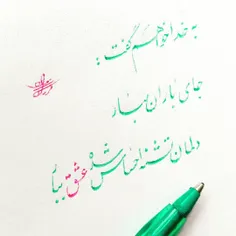 به خدا خواهم گفت:
جای باران بهار
دلمان تشنه احساس شده عشق ببار